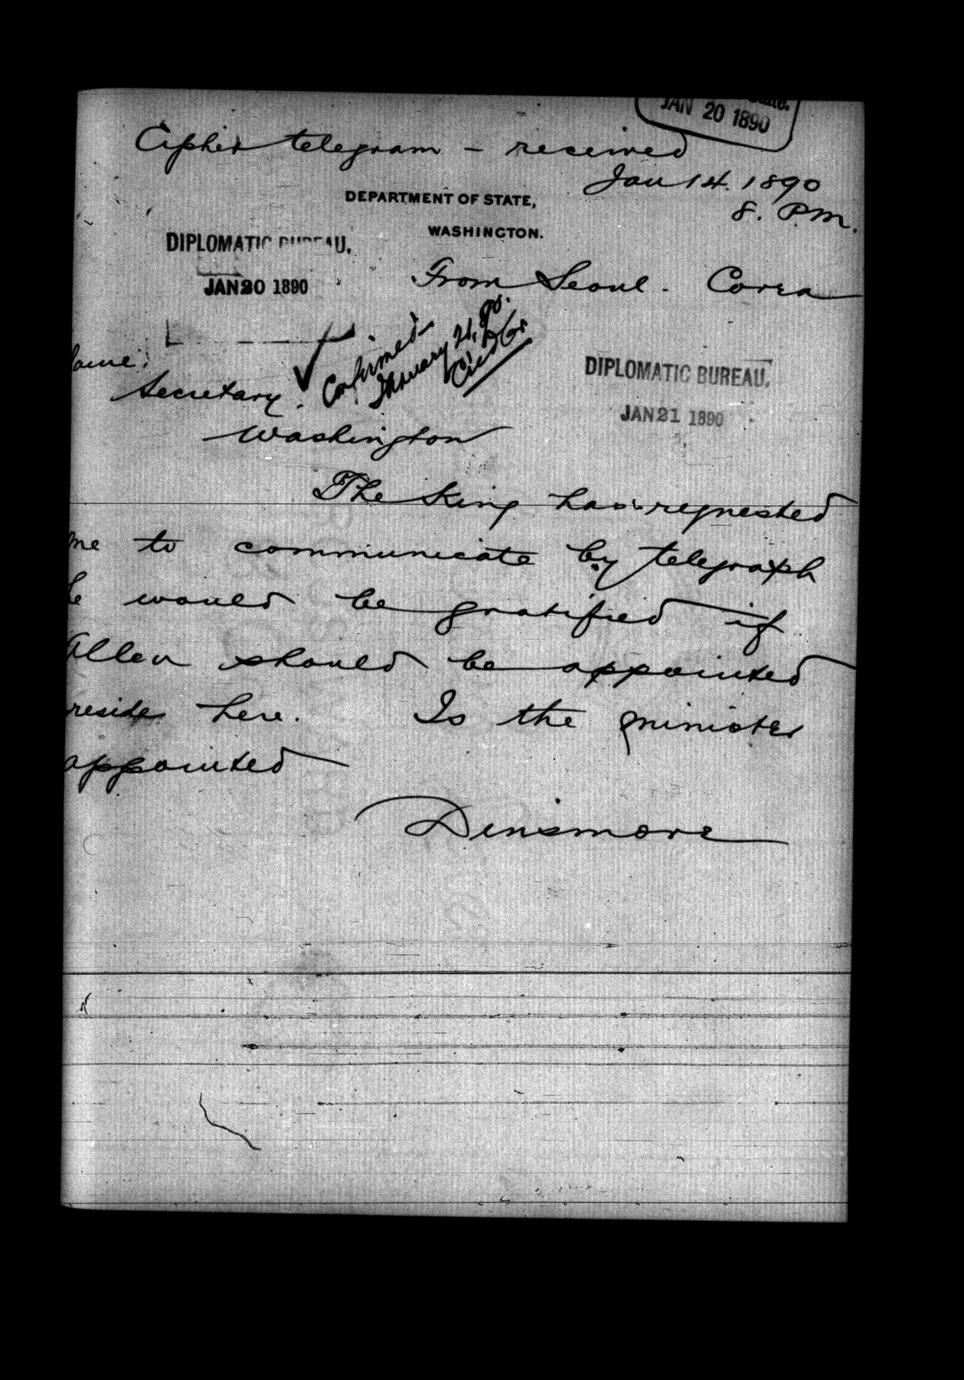 JAN 20 1890
Cipher telegram - received
Jan 14. 1890
8. P.M.
DEPARTMENT OF STATE,
WASHINGTON.
DIPLOMATIC BUREAU.
JAN 20 1890
From Seoul - Corea
Confirmed
January 21, 90.
laine,
Secretary.
Washington
DIPLOMATIC BUREAU.
JAN 21 1890
The King has requested
me to communicate by telegraph
he would be gratified if
Allen should be appointed
reside here. Is the minister
appointed
Dinsmore